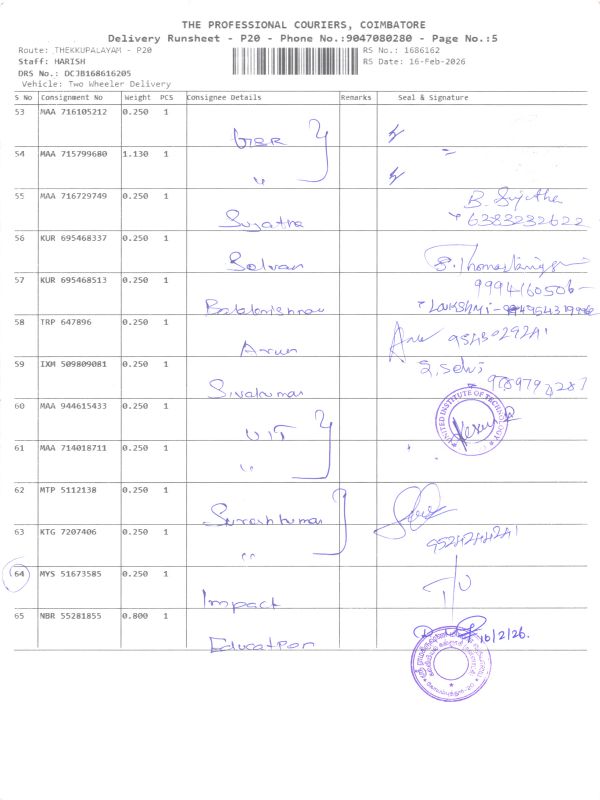 THE PROFESSIONAL COURIERS, COIMBATORE
Delivery Runsheet - P20 - Phone No.:9047080280 - Page No.:5
Route: THEKKUPALAYAM - P20
RS No.: 1686162
Staff: HARISH
RS Date: 16-Feb-2026
DRS No.: DCJB168616205
Vehicle: Two Wheeler Delivery
S No Consignment No Weight PCS Consignee Details Remarks Seal & Signature
53 MAA 716105212 0.250 1
54 MAA 715799680 1.130 1 〃
55 MAA 716729749 0.250 1 Sujatha B. Sujatha
6383232622
56 KUR 695468337 0.250 1 Selvan
9994160506
57 KUR 695468513 0.250 1 Balakrishnan
58 TRP 647896 0.250 1 Arun
59 IXM 509809081 0.250 1 Sivakumar S. Selvi
60 MAA 944615433 0.250 1 UIT
UNITED INSTITUTE OF TECHNOLOGY
61 MAA 714018711 0.250 1 〃
62 MTP 5112138 0.250 1 Sureshkumar
63 KTG 7207406 0.250 1 〃
64 MYS 51673585 0.250 1 Impact
65 NBR 55281855 0.800 1 Education 16/2/26.